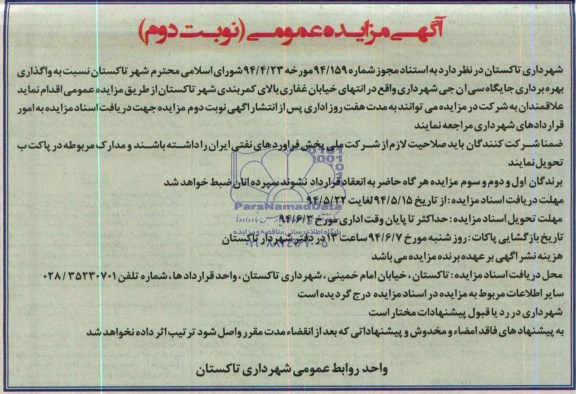 آگهی مزایده عمومی (نوبت دوم)
شهرداری تاکستان در نظر دارد به استناد مجوز شماره ۹۴/۱۵۹ مورخه ۹۴/۴/۲۳ شورای اسلامی محترم شهر تاکستان نسبت به واگذاری
بهره برداری جایگاه سی ان جی شهرداری واقع در انتهای خیابان غفاری بالای کمربندی شهر تاکستان از طریق مزایده عمومی اقدام نماید
علاقمندان به شرکت در مزایده می توانند به مدت هفت روز اداری پس از انتشار آگهی نوبت دوم مزایده جهت دریافت اسناد مزایده به امور
قراردادهای شهرداری مراجعه نمایند
ضمنا شرکت کنندگان باید صلاحیت لازم از شرکت ملی پخش فراورده‌ای نفتی ایران را داشته باشند و مدارک مربوطه در پاکت ب
تحویل نمایند
برندگان اول و دوم و سوم مزایده هر گاه حاضر به انعقاد قرارداد نشوند سپرده انان ضبط خواهد شد
مهلت دریافت اسناد مزایده: از تاریخ ۹۴/۵/۱۵ لغایت ۹۴/۵/۲۲
مهلت تحویل اسناد مزایده: حداکثر تا پایان وقت اداری مورخ ۹۴/۶/۳
تاریخ بازگشایی پاکات: روز شنبه مورخ ۹۴/۶/۷ ساعت ۱۳ در دفتر شهردار تاکستان
هزینه نشر اگهی بر عهده برنده مزایده می باشد
محل دریافت اسناد مزایده: تاکستان، خیابان امام خمینی، شهرداری تاکستان، واحد قراردادها، شماره تلفن ۳۵۲۳۰۷۰۱ / ۰۲۸
سایر اطلاعات مربوط به مزایده در اسناد مزایده درج گردیده است
شهرداری در رد یا قبول پیشنهادات مختار است
به پیشنهادهای فاقد امضاء و مخدوش و پیشنهاداتی که بعد از انقضاء مدت مقرر واصل شود ترتیب اثر داده نخواهد شد
واحد روابط عمومی شهرداری تاکستان
ParsNamadData
پایگاه اطلاع رسانی مناقصه و مزایده